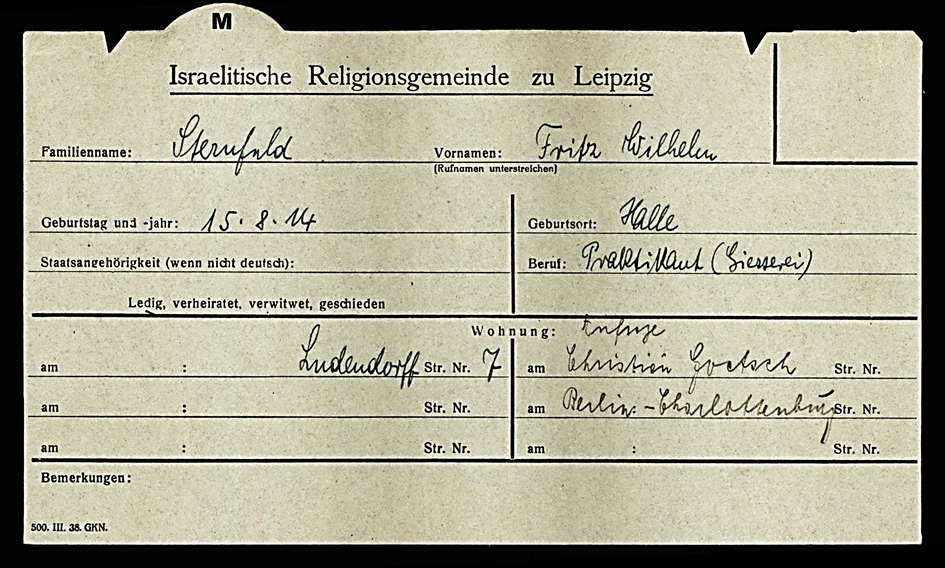 M
Israelitische Religionsgemeinde zu Leipzig
Familienname: Sternfeld Vornamen: Fritz Wilhelm
(Rufnamen unterstreichen)
Geburtstag und -jahr: 15. 8. 14 Geburtsort: Halle
Staatsangehörigkeit (wenn nicht deutsch): Beruf: Praktikant (Giesserei)
Ledig, verheiratet, verwitwet, geschieden
Wohnung:
am : Ludendorff Str. Nr. 7 am Christian Goetsch Str. Nr.
am : Str. Nr. am Berlin.-Charlottenburg Str. Nr.
am : Str. Nr. am : Str. Nr.
Bemerkungen:
500. III. 38. GKN.